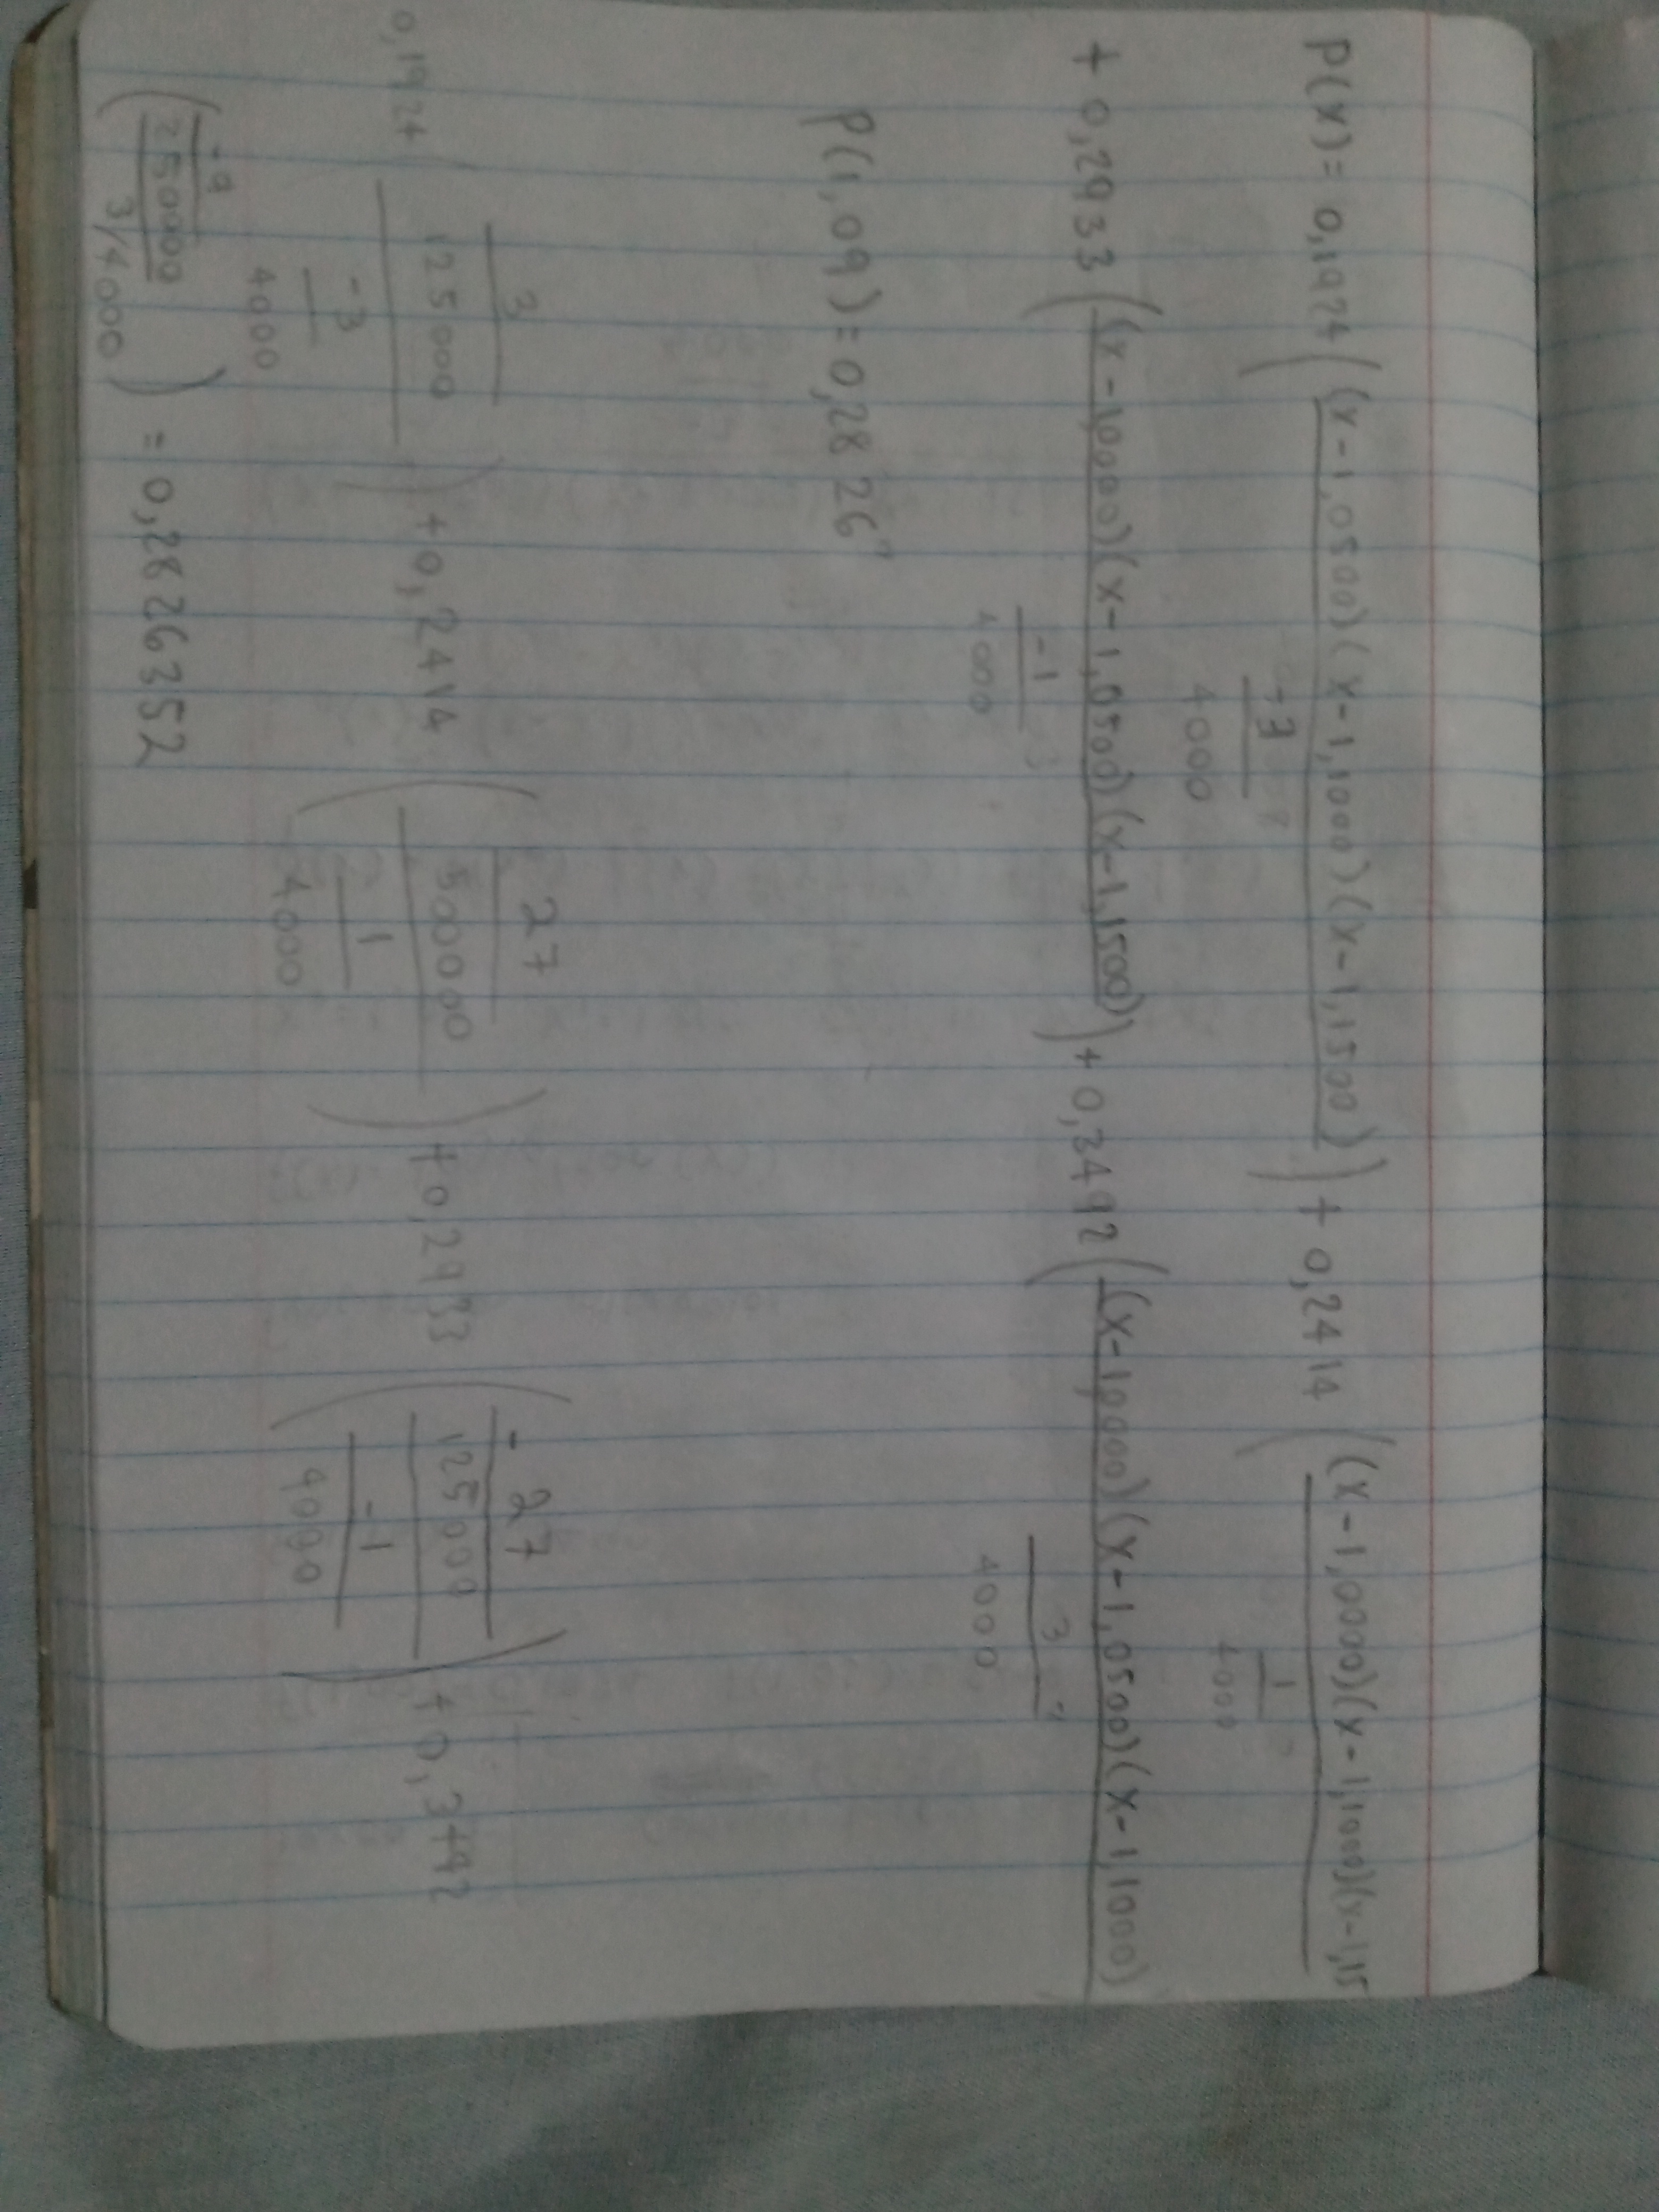 P(x) = 0,1924 ( (x-1,0500)(x-1,1000)(x-1,1500) ) + 0,2414 ( (x-1,0000)(x-1,1000)(x-1,15
-3
4000
1
4000
+ 0,2933 ( (x-1,0000)(x-1,0500)(x-1,1500) ) + 0,3492 ( (x-1,0000)(x-1,0500)(x-1,1000)
-1
4000
3
4000
P(1,09) = 0,2826"
0,1924 ( 3/125000 / -3/4000 ) + 0,2414 ( 27/500000 / 1/4000 ) + 0,2933 ( -27/125000 / -1/4000 ) + 0,3492
( -9/250000 / 3/4000 ) = 0,28626352